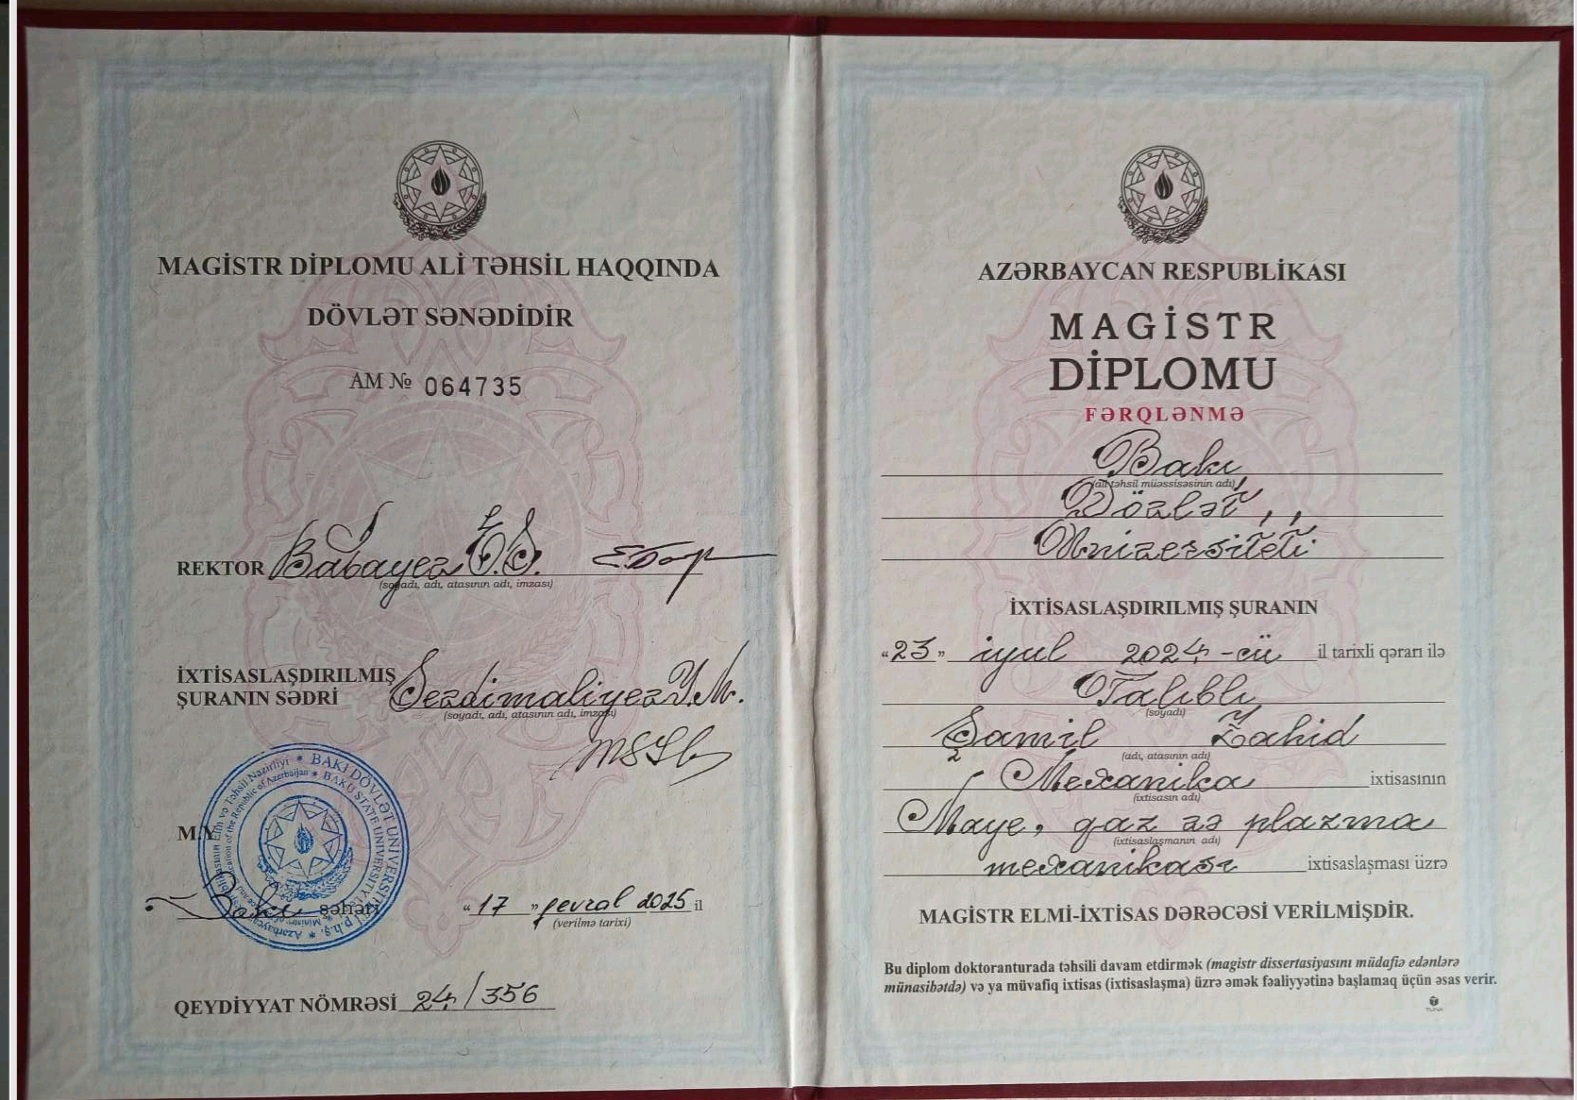 MAGİSTR DİPLOMU ALİ TƏHSİL HAQQINDA
DÖVLƏT SƏNƏDİDİR
AM № 064735
REKTOR Babayev E.S.
(soyadı, adı, atasının adı, imzası)
İXTİSASLAŞDIRILMIŞ
ŞURANIN SƏDRİ Seydimaliyev Y.M.
(soyadı, adı, atasının adı, imzası)
M.Y.
BAKI DÖVLƏT UNİVERSİTETİ
BAKU STATE UNIVERSITY
Bakı şəhəri “17” fevral 2025 il
(verilmə tarixi)
QEYDİYYAT NÖMRƏSİ 24/356
AZƏRBAYCAN RESPUBLİKASI
MAGİSTR
DİPLOMU
FƏRQLƏNMƏ
Bakı
(ali təhsil müəssisəsinin adı)
Dövlət
Universiteti
İXTİSASLAŞDIRILMIŞ ŞURANIN
“23” iyul 2024-cü il tarixli qərarı ilə
Talıblı
(soyadı)
Şamil Zahid
(adı, atasının adı)
Mexanika ixtisasının
(ixtisasın adı)
Maye, qaz və plazma
(ixtisaslaşmanın adı)
mexanikası ixtisaslaşması üzrə
MAGİSTR ELMİ-İXTİSAS DƏRƏCƏSİ VERİLMİŞDİR.
Bu diplom doktoranturada təhsili davam etdirmək (magistr dissertasiyasını müdafiə edənlərə
münasibətdə) və ya müvafiq ixtisas (ixtisaslaşma) üzrə əmək fəaliyyətinə başlamaq üçün əsas verir.